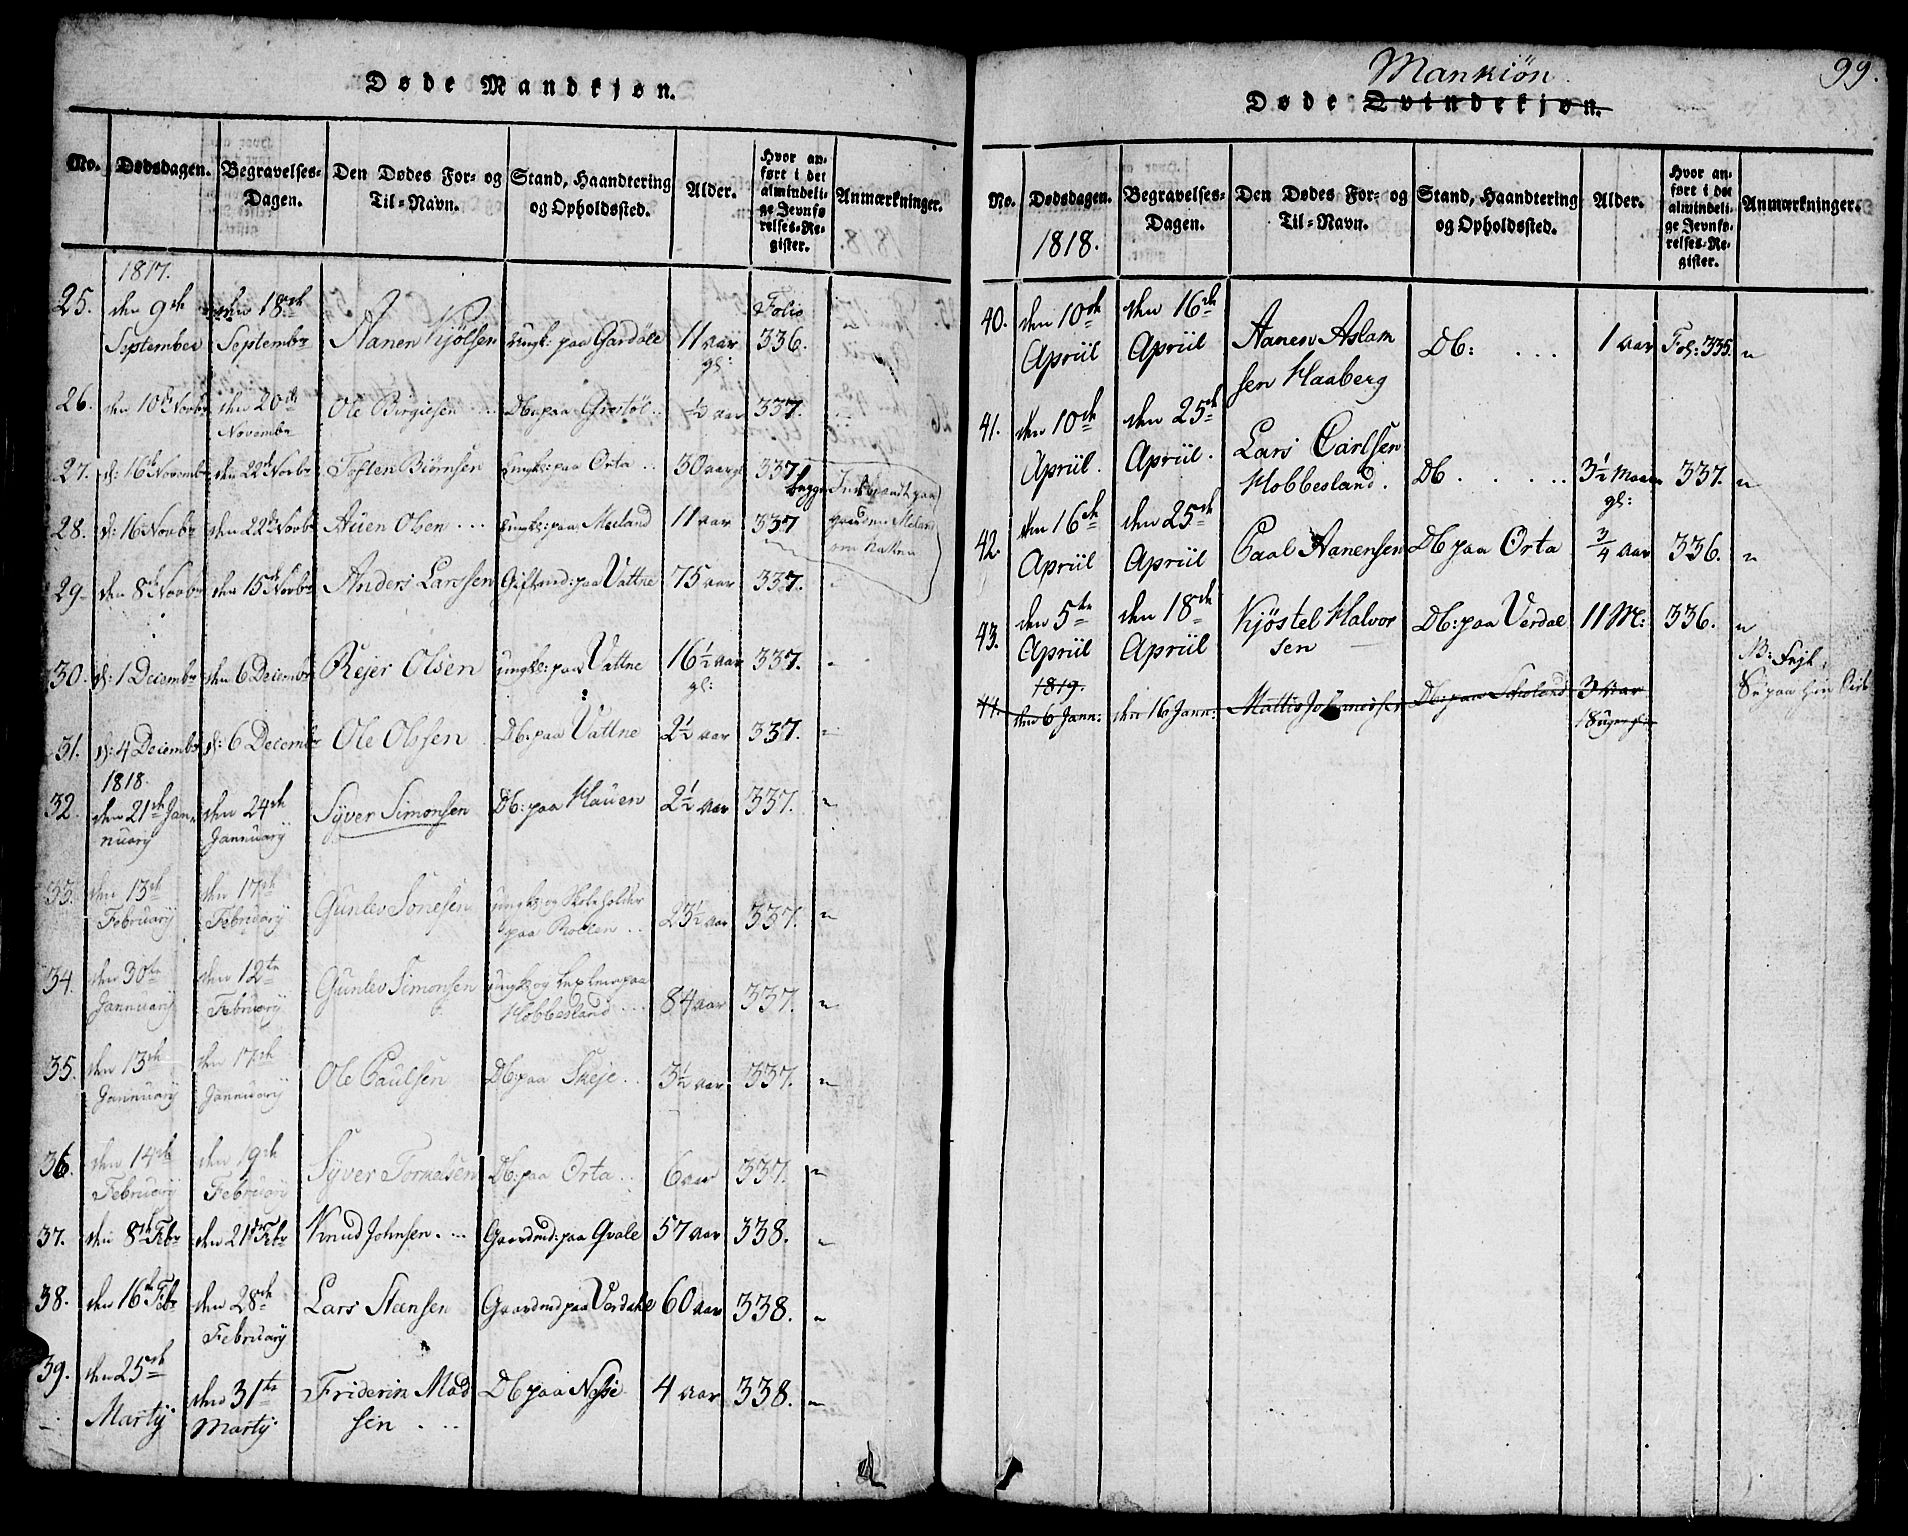 Døde Mandkjøn.
No. Dødsdagen. Begravelses-Dagen. Den Dødes For- og Til-Navn. Stand, Haandtering og Opholdssted. Alder. Hvor anført i det almindelige Jevnførelses-Register. Anmærkninger.
1817.
25. den 9de September den 18de September Aanen Kjölsen ungk: paa Gardöle 11 aar gl: Folio 336.
26. den 10de Novbr den 20de Novembr Ole Birgiesen Db: paa Grostöl ½ aar 337.
27. d: 16de Novembr den 22de Novbr Toflen Biørnsen ungk: paa Orta 30 aar gl 337.
28. d: 16 Novbr den 22de Novbr Auen Olsen ungk: paa Meeland 11 aar 337
begge Indbrændt paa gaarden Meland om Natten
29. den 8de Novbr den 15de Novbr Anders Larssen Giftmd: paa Vattne 75 aar 337.
30. d: 1 Decembr den 6 Decembr Rejer Olsen ungk: paa Vattne 16½ aar gl: 337.
31. d: 4 Decembr d: 6 Decembr Ole Olssen Db: paa Vattne 2½ aar 337.
1818.
32. den 21de Jannuary den 24de Jannuary Syver Simonsen Db: paa Hauen 2½ aar 337.
33. den 13de February den 17de February Gunlev Sonesen ungk: og Skoleholder paa Rollen 23½ aar 337.
34. den 30te Jannuary den 12te February Gunlev Simonsen ungk: og paa Hobbesland 84 aar 337.
35. den 13de Jannuary den 17de Jannuary Ole Paulsen Db: paa Skeje 3½ aar 337.
36. den 14de February den 19de February Syver Torkelsen Db: paa Orta 6 aar 337.
37. den 8de Febr den 21de Febr Knud Johnsen Gaardmd: paa Qvale 57 aar 338.
38. den 16de Febr den 28de February Lars Stensen Gaardmd paa Verdahl 60 aar 338.
39. den 25de Marty den 31te Marty Friderin Madsen Db paa Nese 4 aar 338.
99.
Mankiön.
Døde Qvindekjøn.
No. Dødsdagen. Begravelses-Dagen. Den Dødes For- og Til-Navn. Stand, Haandtering og Opholdssted. Alder. Hvor anført i det almindelige Jevnførelses-Register. Anmærkninger.
1818.
40. den 10de Apriil den 16de Apriil Aanen Aslamsen Haaberg Db: 1 aar Fol: 335.
41. den 10de Apriil. den 25de Apriil. Lars Carlsen Hobbesland. Db 3½ Maan gl: 337.
42. den 16de Apriil den 25de Apriil Paal Aanensen Db paa Orta ¾ aar 336.
43. den 5te Apriil den 18de Apriil Kjöstel Halvorsen Db: paa Verdal 11 M: 336.
1819.
44. den 6 Jann: den 16 Jann: Mattis Johannesen Db: paa 3 aar 18 uger gl: NB: Fejl.